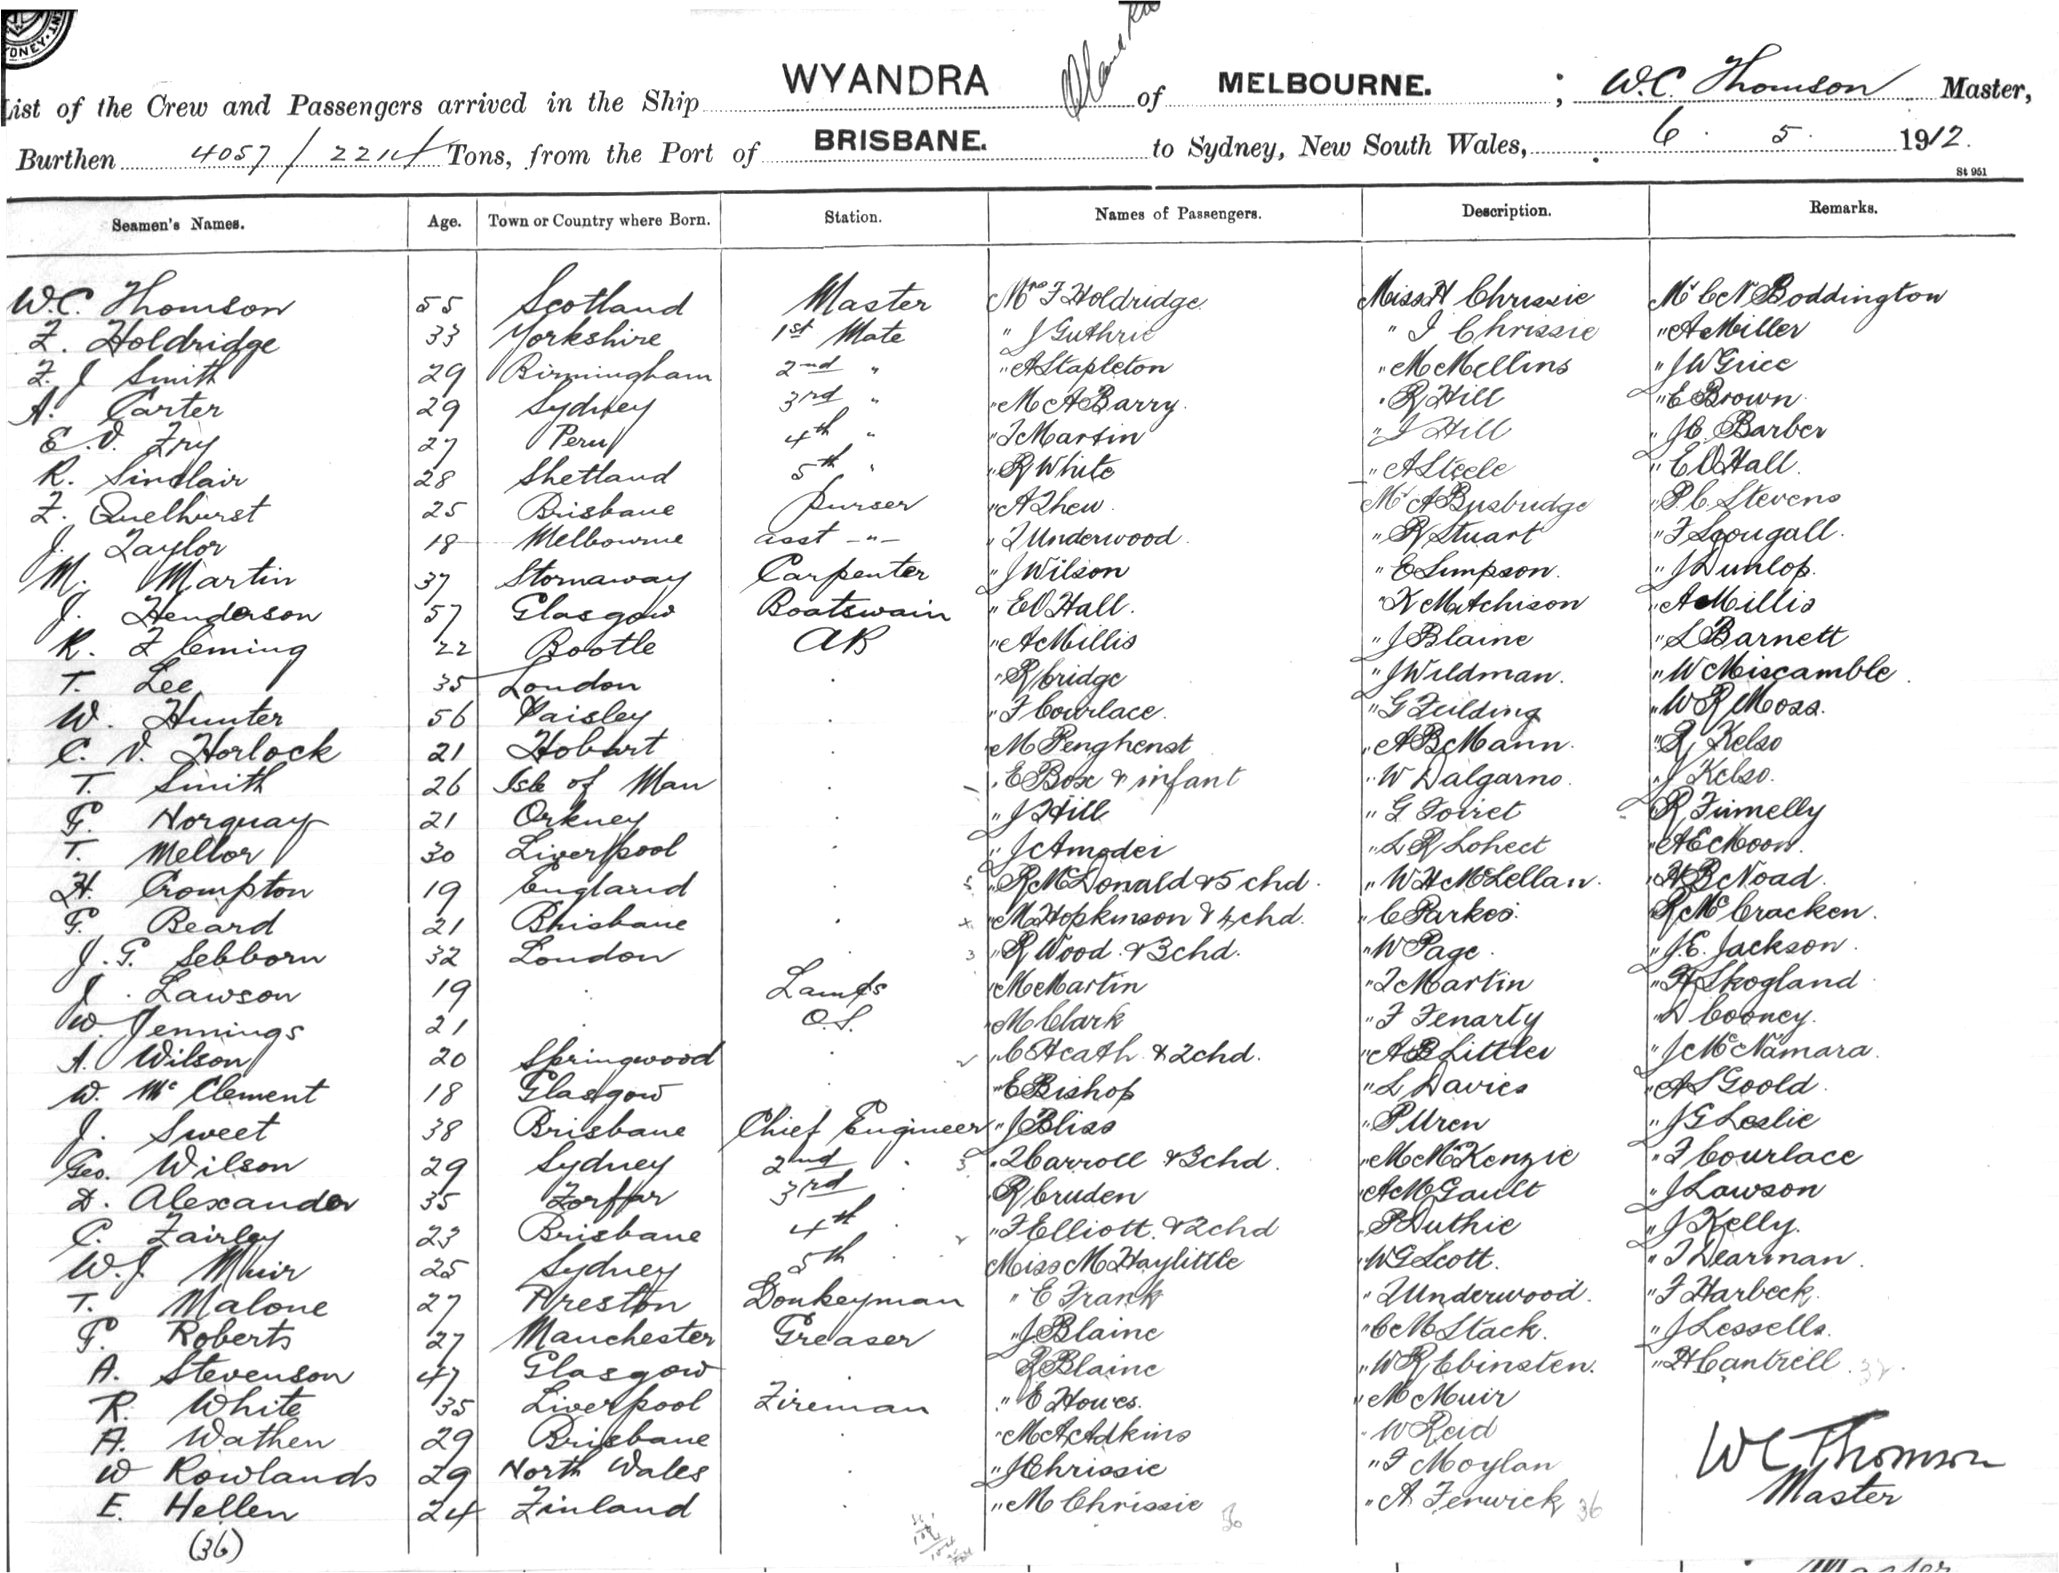 DNEY. INT
WYANDRA
MELBOURNE.
W.C. Thomson
List of the Crew and Passengers arrived in the Ship WYANDRA of MELBOURNE. ; W.C. Thomson Master,
Burthen 4057 / 2214 Tons, from the Port of BRISBANE. to Sydney, New South Wales, 6. 5. 1912.
St 951
Seamen's Names. Age. Town or Country where Born. Station. Names of Passengers. Description. Remarks.
W.C. Thomson 55 Scotland Master Mrs F Holdridge Miss H Chrissie Mr C N Boddington
F. Holdridge 33 Yorkshire 1st Mate " J Guthrie " I Chrissie " A Miller
F. J Smith 29 Birmingham 2nd " " A Stapleton " M Mellins " J W Grice
A. Carter 29 Sydney 3rd " " M A Barry " R Hill " E Brown
E. V. Fry 27 Peru 4th " " T Martin " J Hill " J C Barber
R. Sinclair 28 Shetland 5th " " R White " A Steele " E O Hall
F. Quelhurst 25 Brisbane purser " A Thew Mr A Busbudge " P. C. Stevens
J. Taylor 18 Melbourne asst -"- " T Underwood " R Stuart " F Scougall
M. Martin 37 Stornaway Carpenter " J Wilson " E Simpson " J Dunlop
J. Henderson 57 Glasgow Boatswain " E O Hall " K Mitchison " A Millis
R. Fleming 22 Bootle AB " A Millis " J Blaine " L Barnett
T. Lee 35 London " R Cridge " J Wildman " W Miscamble
W. Hunter 56 Paisley " F Courlace " G Feilding " W R Moss
C. V. Horlock 21 Hobart " M Penghenst " A B Mann " R Kelso
T. Smith 26 Isle of Man " E Box & infant " W Dalgarno " J Kelso
F. Norquay 21 Orkney " J Hill " G Foiret " R Finnelly
T. Mellor 30 Liverpool " J Amodei " L R Loheet " A E Moon
H. Crompton 19 England 5 " R McDonald & 5 chd. " W H McLellan " H B Noad
F. Beard 21 Brisbane 4 " M Hopkinson & 4 chd. " C Parkes " R McCracken
J. G. Sebborn 32 London 3 " R Wood & 3 chd. " W Page " J. E. Jackson
J. Lawson 19 Lamps " M Martin " T Martin " H Skogland
W. Jennings 21 O.S. " M Clark " F Fenarty " D Cooney
A. Wilson 20 Springwood 2 " C Heath & 2 chd. " A B Littler " J McNamara
W. McClement 18 Glasgow " E Bishop " L Davies " A S Goold
J. Sweet 38 Brisbane Chief Engineer " J Bliss " P Uren " J G Leslie
Geo. Wilson 29 Sydney 2nd 3 " T Carroll & 3 chd. " M McKenzie " F Courlace
D. Alexander 35 Forfar 3rd " R Cruden " A McGault " J Lawson
C. Fairley 23 Brisbane 4th 2 " F Elliott & 2 chd " P Duthie " J Kelly
W. J Muir 25 Sydney 5th Miss M Haylittle " W G Scott " T Dearman
T. Malone 27 Preston Donkeyman " E Frank " T Underwood " F Harbeck
F. Roberts 27 Manchester Greaser " J Blaine " C M Stack " J Lessells
A. Stevenson 47 Glasgow " R Blaine " W R Ebinsten " H Cantrell
R. White 35 Liverpool Fireman " E Howes " M Muir
A. Wathen 29 Brisbane " M A Adkins " W Reid
W Rowlands 29 North Wales " J Chrissie " F Moylan
E. Hellen 24 Finland " M Chrissie 30 " A Fenwick 36
(36)
W C Thomson
Master
Master